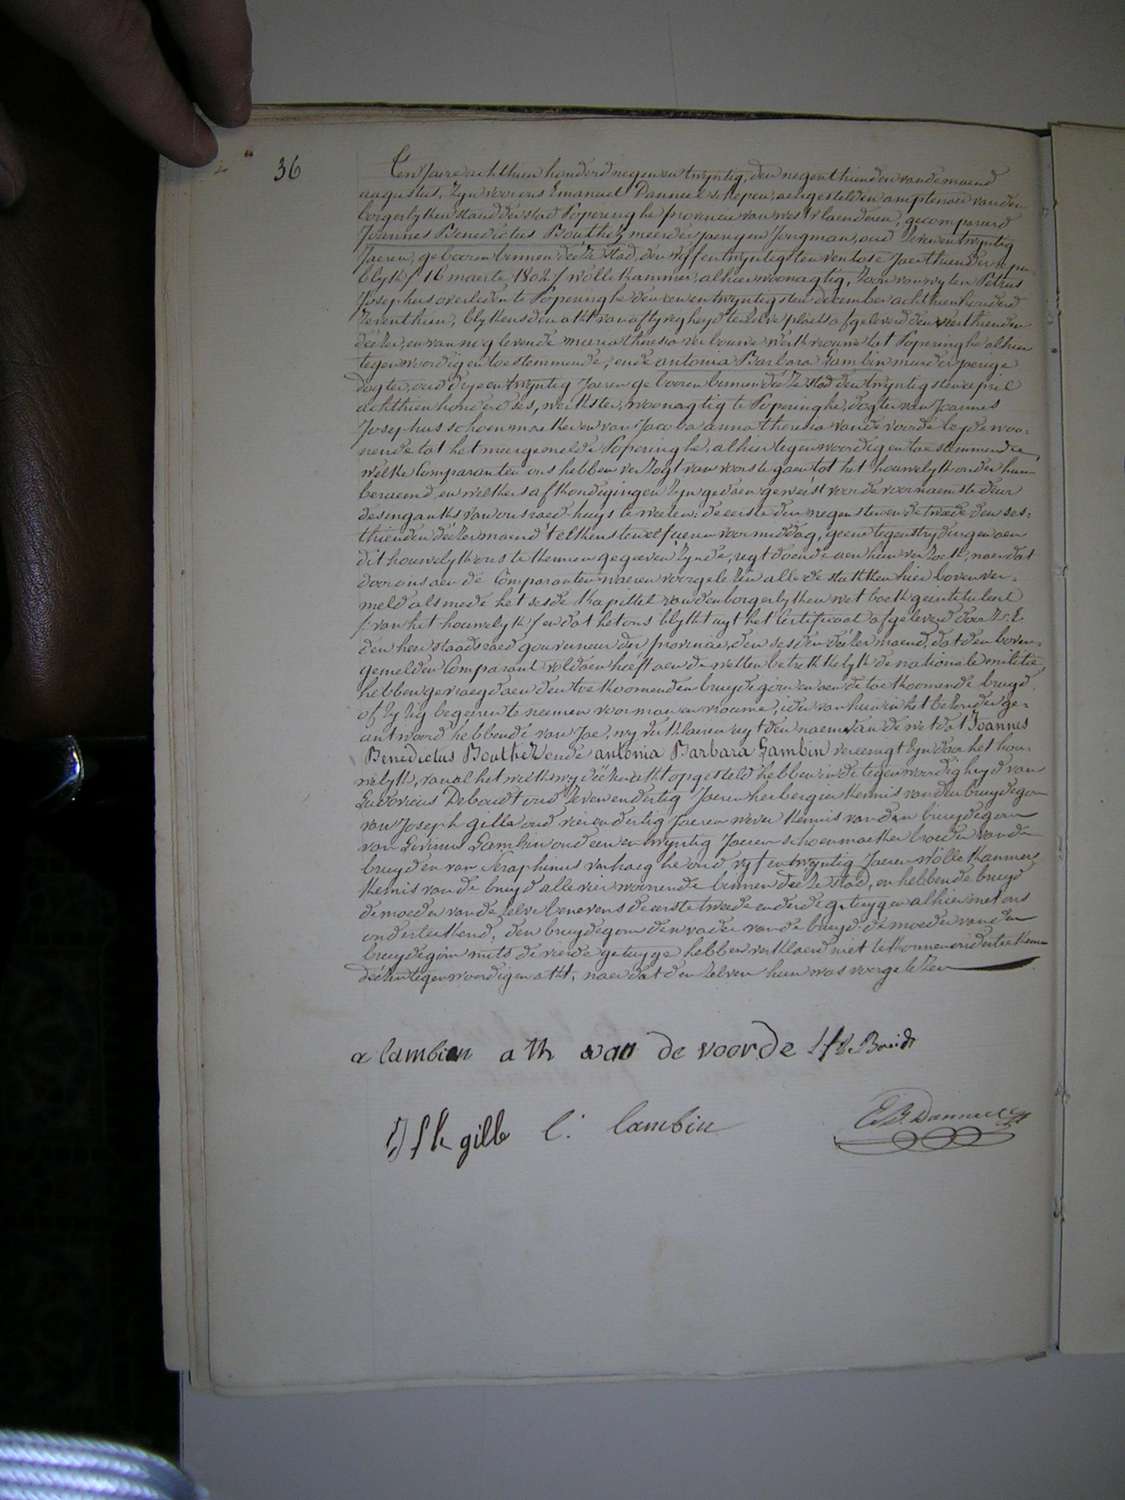 36
Ten Jaere achthien honderd negen en twyntig, den negenthienden van de maend
augustus, zyn voor ons Emanuel Danneel schepen, aengestelden amptenaer van den
borgerlyken stand der stad Poperinghe provincie van west vlaenderen, gecompareerd
Joannes Benedictus Bouthez meerderjaerigen Jongman, oud zeven en twyntig
Jaeren, geboren binnen deéze stad, den vyf en twyntigsten ventose Jaer thien der repu-
blyk / 16 maerte 1802 / wolle kammer, alhier woonagtig, zoon van wylen Petrus
Josephus overleden te Poperinghe den een en twyntigsten december achthien honderd
zeventhien, blykens den akt van aflyvigheyd ter zelve plaets afgeleverd den veerthienden
dézer, en van nog levende maria theresia verbouw werkvrouwe tot Poperinghe alhier
tegenwoordig en toestemmende, ende antonia Barbara Lambin meerderjaerige
dogter, oud dry en twyntig Jaeren geboren binnen deéze stad den twyntigsten april
achthien honderd ses, werkster, woonagtig te Poperinghe, dogter van Joannes
Josephus schoenmaeker en van Jacoba anna theresia vande voorde beyde woo-
nende tot het meergemelde Poperinghe, alhier tegenwoordig en toestemmende,
welke Comparanten ons hebben verzogt van voorts te gaen tot het houwelyk onder hun
beraemd, en welkers afkondigingen zyn gedaen geweest voor de voornaemste deur
des ingangs van ons raed-huys te weeten: de eerste den negensten en de twede den ses-
thienden dézer maend telkens ten elf uren voor middag, geene tegenstrydingen aen
dit houwelyk ons te kennen gegeven zynde, regt doende aen hun verzoek, naer dat
door ons aen de Comparanten waeren voorgelezen alle de stukken hier boven ver-
meld als mede het sesde kapittel van den borgerlyken wet boek geintituleerd
/ van het houwelyk / en dat het ons blykt uyt het Certificaet afgeleverd door Z.E
den heer staedsraed gouverneur der provincie, den sesden dézer maend, dat den boven-
gemelden Comparant voldaen heeft aen de wetten betrekkelyk de nationale militie
hebben gevraegd aen den toekoomenden bruydegom en aen de toekoomende bruyd
of zy zig begeeren te neemen voor man en vrouwe, ider van hun in het bezonder ge-
antwoord hebbende van Jae, wy verklaeren uyt den naem van de wet dat Joannes
Benedictus Bouthez ende antonia Barbara Lambin vereenigt zyn door het hou-
welyk, van al het welk wy deézen akt opgesteld hebben in de tegenwoordigheyd van
Ludovicus Deboudt oud zeven en dertig Jaeren herbergier kennis van den bruydegom
van Joseph Gille oud vier en dertig Jaeren wever kennis van den bruydegom
van Livinus Lambin oud een en twyntig Jaeren schoenmaeker broeder van de
bruyd en van Seraphinus vanhaeghe oud vyf en twyntig Jaeren wolle kammer
kennis van de bruyd alle vier woonende binnen deéze stad, en hebben de bruyd
de moeder van de zelve benevens de eerste tweede en derde getuygen alhier met ons
onderteekend, den bruydegom den vader van de bruyd de moeder van den
bruydegom mits de vierde getuyge hebben verklaerd niet te konnen onderteekenen
deézen tegenwoordigen akt, naer dat den zelven hun was voorgelezen
a lambin a th van de voorde L f De Boudt
J f k gille l. lambin E B Danneel